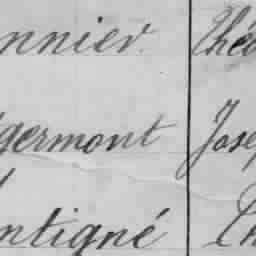 nnier. Théo
germont Jose
ntigné Ch